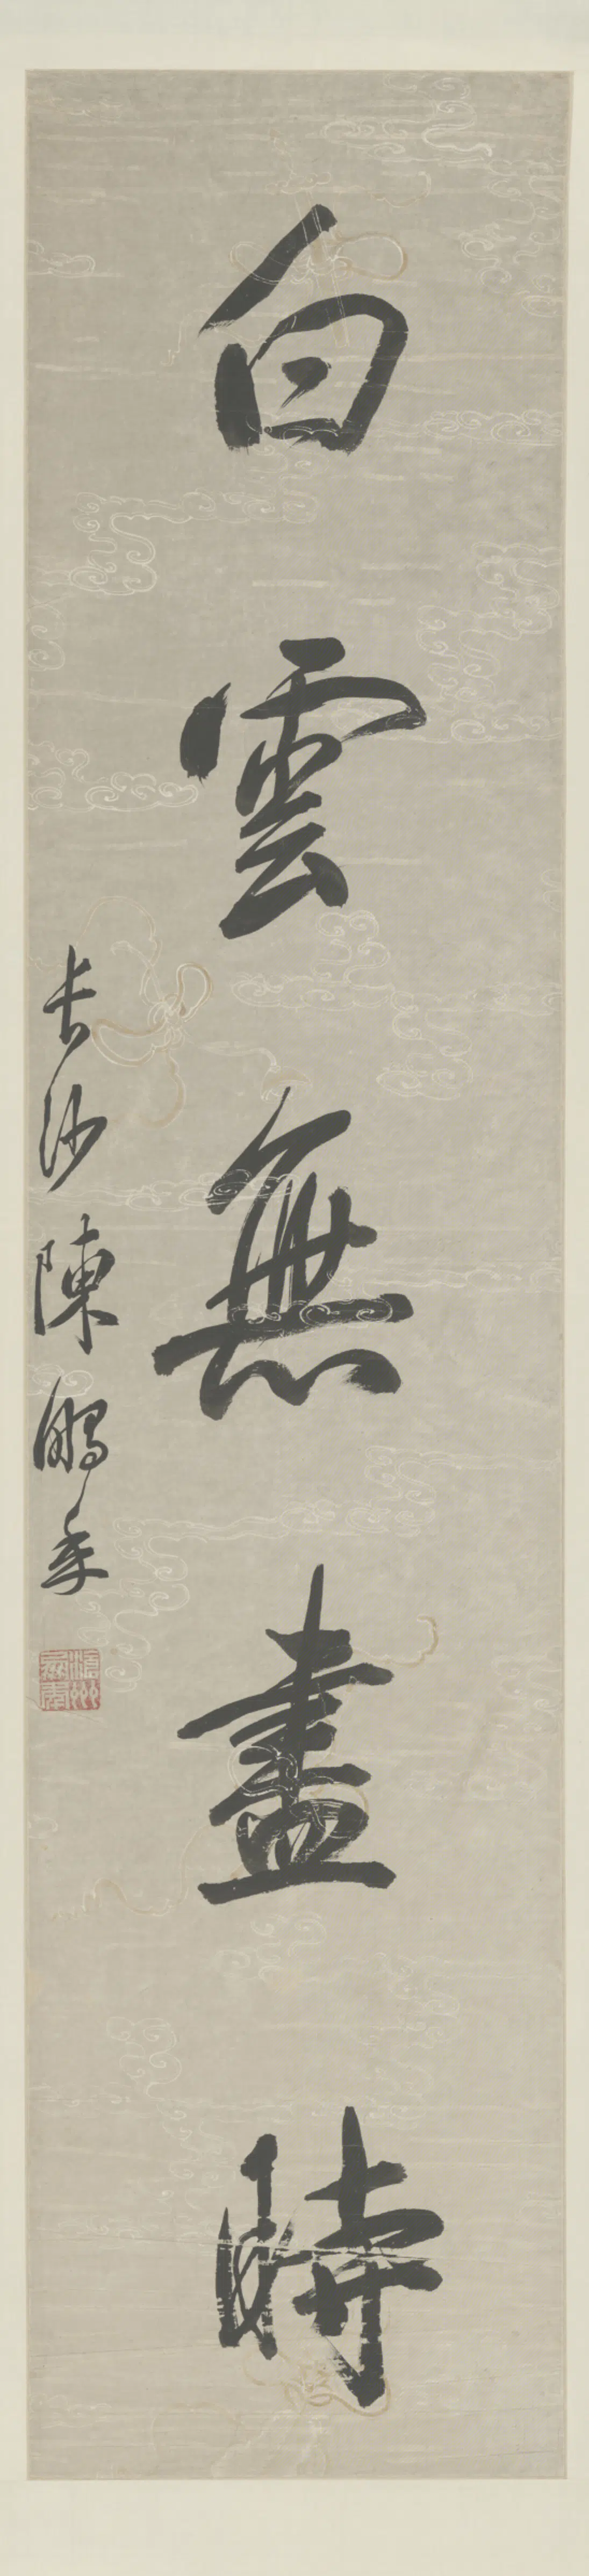 白雲無盡時
長沙陳鵬年